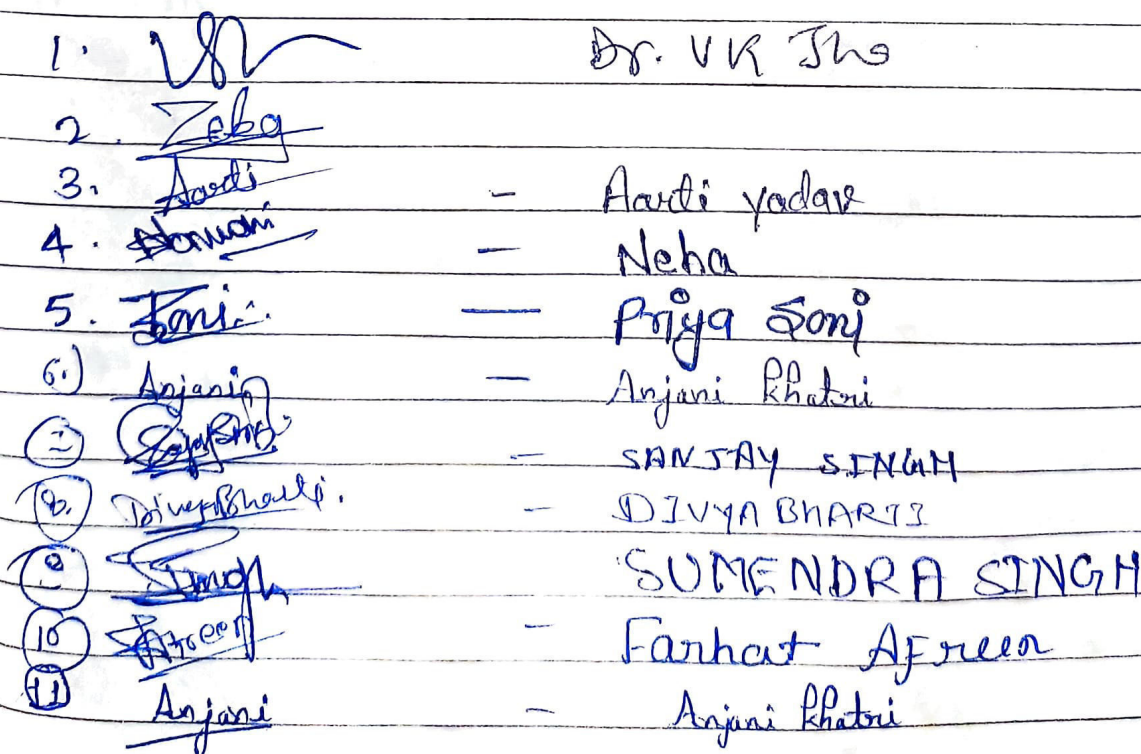 1. Dr. VK Jha
2. Zeba
3. Aarti - Aarti yadav
4. - Neha
5. Soni - Priya Soni
6.) Anjani - Anjani Khatri
7 - SANJAY SINGH
8. Divya Bharti. - DIVYA BHARTI
9 Singh SUMENDRA SINGH
10 Afreen - Farhat AFreen
11 Anjani - Anjani Khatri